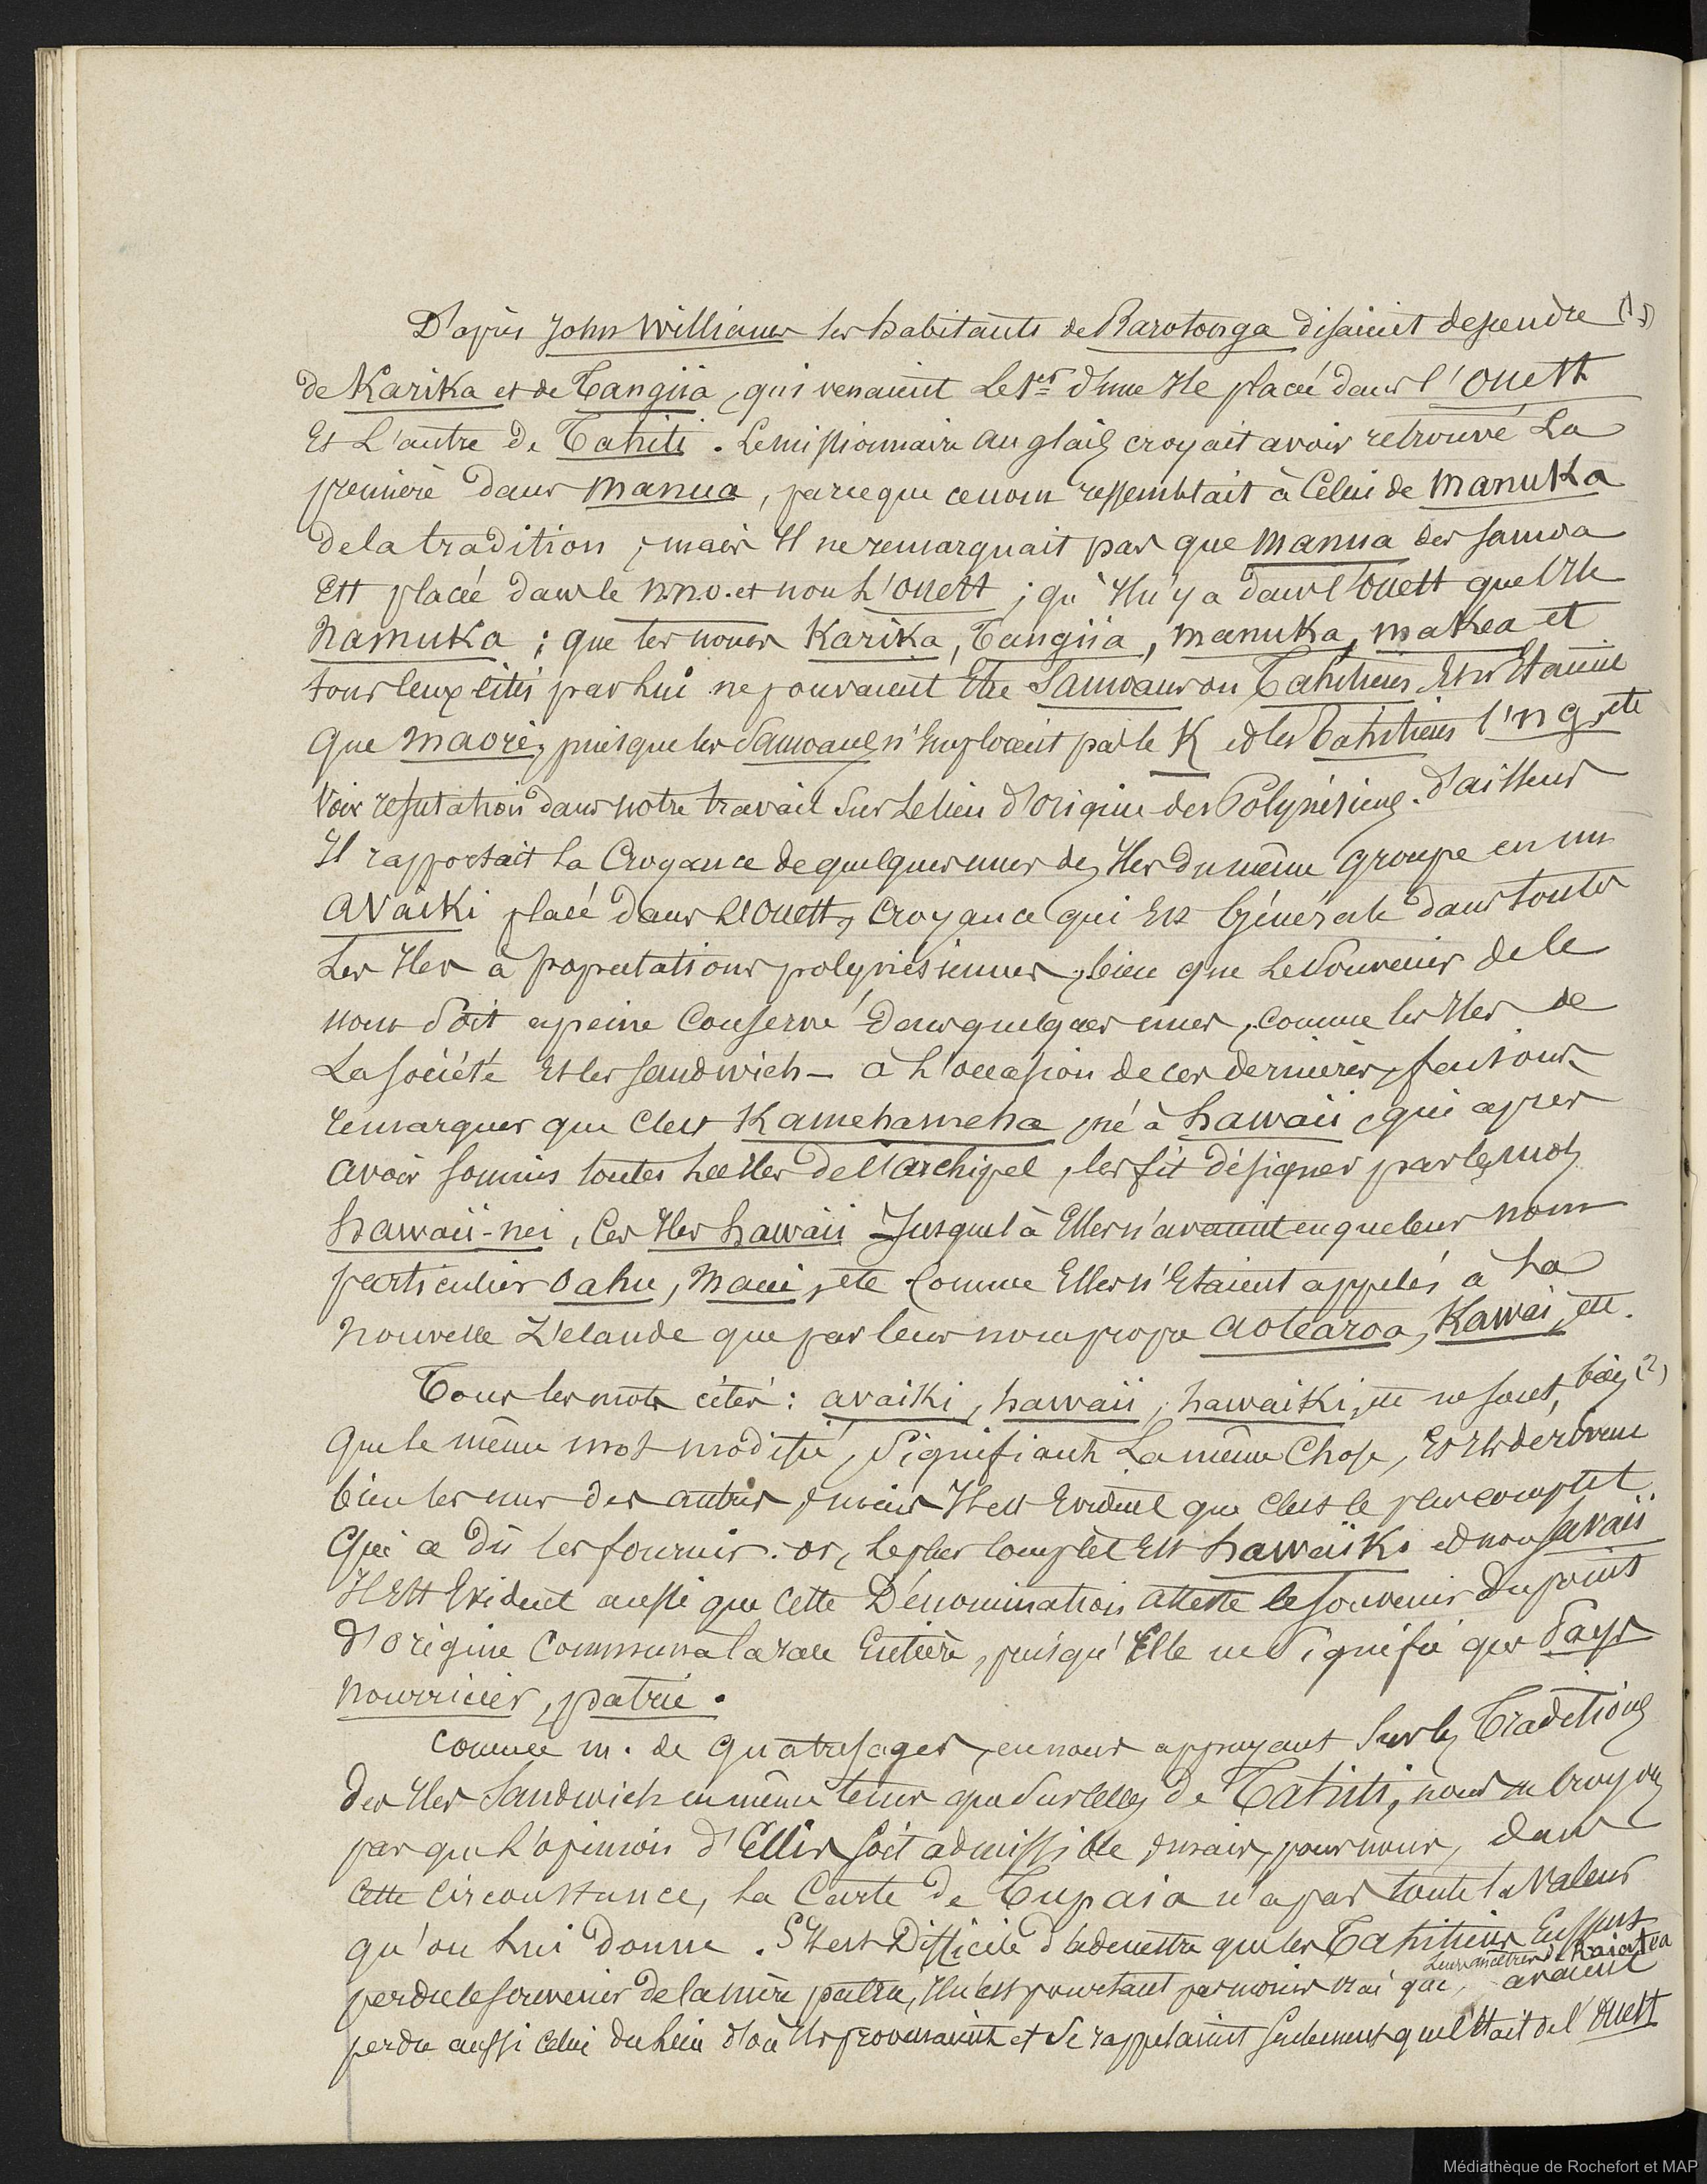 D'après John Williams les habitants de Rarotonga disaient descendre (1)
de Karika et de Tangiia, qui venaient Le 1er d'une Ile placée dans l'Ouest
Et L'autre de Tahiti. Le missionnaire anglais croyait avoir retrouvé La
première dans Manua, parceque ce nom ressemblait à Celui de Manuka
de la tradition ; mais Il ne remarquait pas que Manua des Samoa
Est placée dans le n.n.o. et non L'Ouest ; qu'Il n'y a dans l'Ouest que l'Ile
Namuka ; que les noms Karika, Tangiia, Manuka, Makea et
tous ceux cités par Lui ne pouvaient Etre Samoans ou Tahitiens Et n'Etaient
que Maori, puisque les Samoans n'Employaient pas le K et les Tahitiens l'ng etc
Voir refutation dans notre travail Sur Le lieu d'origine des Polynésiens. D'ailleurs
Il rapportait la Croyance de quelques unes des Iles du même groupe en un
Avaiki placé dans L'Ouest, Croyance qui Est Générale dans toutes
Les Iles à populations polynésiennes, bien que Le Souvenir de le
nom Soit à peine Conservé dans quelques unes, comme les Iles de
La Société Et les Sandwich - à L'occasion de ces dernières, faisons
remarquer que C'est Kamehameha, né à Hawaii, qui après
avoir soumis toutes les Iles de l'archipel, les fit désigner par les mots
Hawaii-nei, Ces Iles Hawaii Jusque là Elles n'avaient eu que leur nom
particulier Oahu, Maui, etc Comme Elles n'Etaient appelés à La
Nouvelle Zélande que par leur nom propre Aotearoa, Kawai, etc.
Tous les mots cités : avaiki, hawaii, hawaiki, etc ne sont, bien (2)
Que le même mot modifié, Signifiant La même Chose, Et Ils dérivent
bien les uns des autres, mais Il est Evident que C'est le plus complet
Qui a dû les fournir. or, Le plus Complet Est hawaiki et non Savaii
Il Est Evident aussi que Cette Dénomination atteste le souvenir du point
d'origine Commun à la race Entière, puisqu'Elle ne Signifie que Pays
nourricier, patrie.
Comme m. de Quatrefages, en nous appuyant Sur les Traditions
des Iles Sandwich en même tems que Sur Celles de Tahiti, nous ne croyons
pas que L'opinion d'Ellis Soit admissible, mais, pour nous, dans
Cette Circonstance, La Carte de Tupaia n'a pas toute la Valeur
qu'on Lui donne. S'Il est Difficile d'admettre que les Tahitiens Eussent
perdu le souvenir de la mère patrie, Il n'est pourtant pas moins vrai que, Leurs ancêtres de Raiatea avaient
perdu aussi Celui du Lieu d'où Ils provenaient et Se rappelaient Seulement qu'il Etait de l'Ouest
Médiathèque de Rochefort et MAP